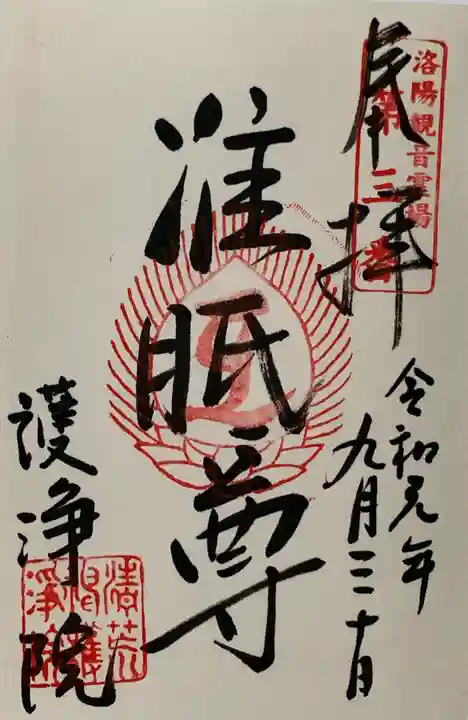 奉拝
洛陽観音霊場
第三番
令和元年
九月三十日
准胝尊
護浄院